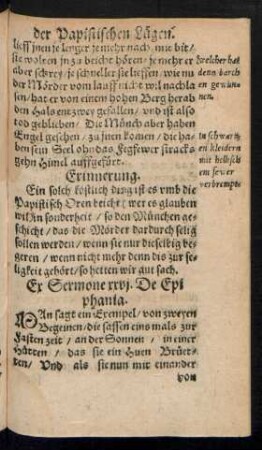 der Papistischen Lügen.
lieff jnen je lenger je mehr nach, mit bit/
sie wolten jn zu beicht hören/ je mehr er
aber schrey/ je schneller sie lieffen/ wie nu
der Mörder vom lauff nicht wil nachlas
sen/ hat er von einem hohen Berg herab
den Hals entzwey gefallen/ vnd ist also
tod geblieben/ Die Münch aber haben
Engel gesehen/ zu jnen komen/ die ha-
ben sein Seel ohn das Fegfewer stracks
gehn Himel auffgefürt.
welcher hat
denn darch
en gewun-
nen.
in schwartz
en kleidern
mit hellisch
em fewer
verbrempt
Erinnerung.
Ein solch köstlich ding ist es vmb die
Papistisch Oren beicht/ wer es glauben
wil/ in sonderheit/ so den München ge-
schicht/ das die Mörder dardurch selig
sollen werden/ wenn sie nur dieselbig be
geren/ wenn nicht mehr denn dis zur se-
ligkeit gehört/ so hetten wir gut sach.
Ex Sermone xxvj. De Epi
phania.
MAn sagt ein Exempel/ von zweyen
Begeinen/ die sassen eins mals zur
Fasten zeit/ an der Sonnen/ in einer
Hütten/ das sie ein Huen Brüet-
ten/ Vnd als sie nun mit einander
von